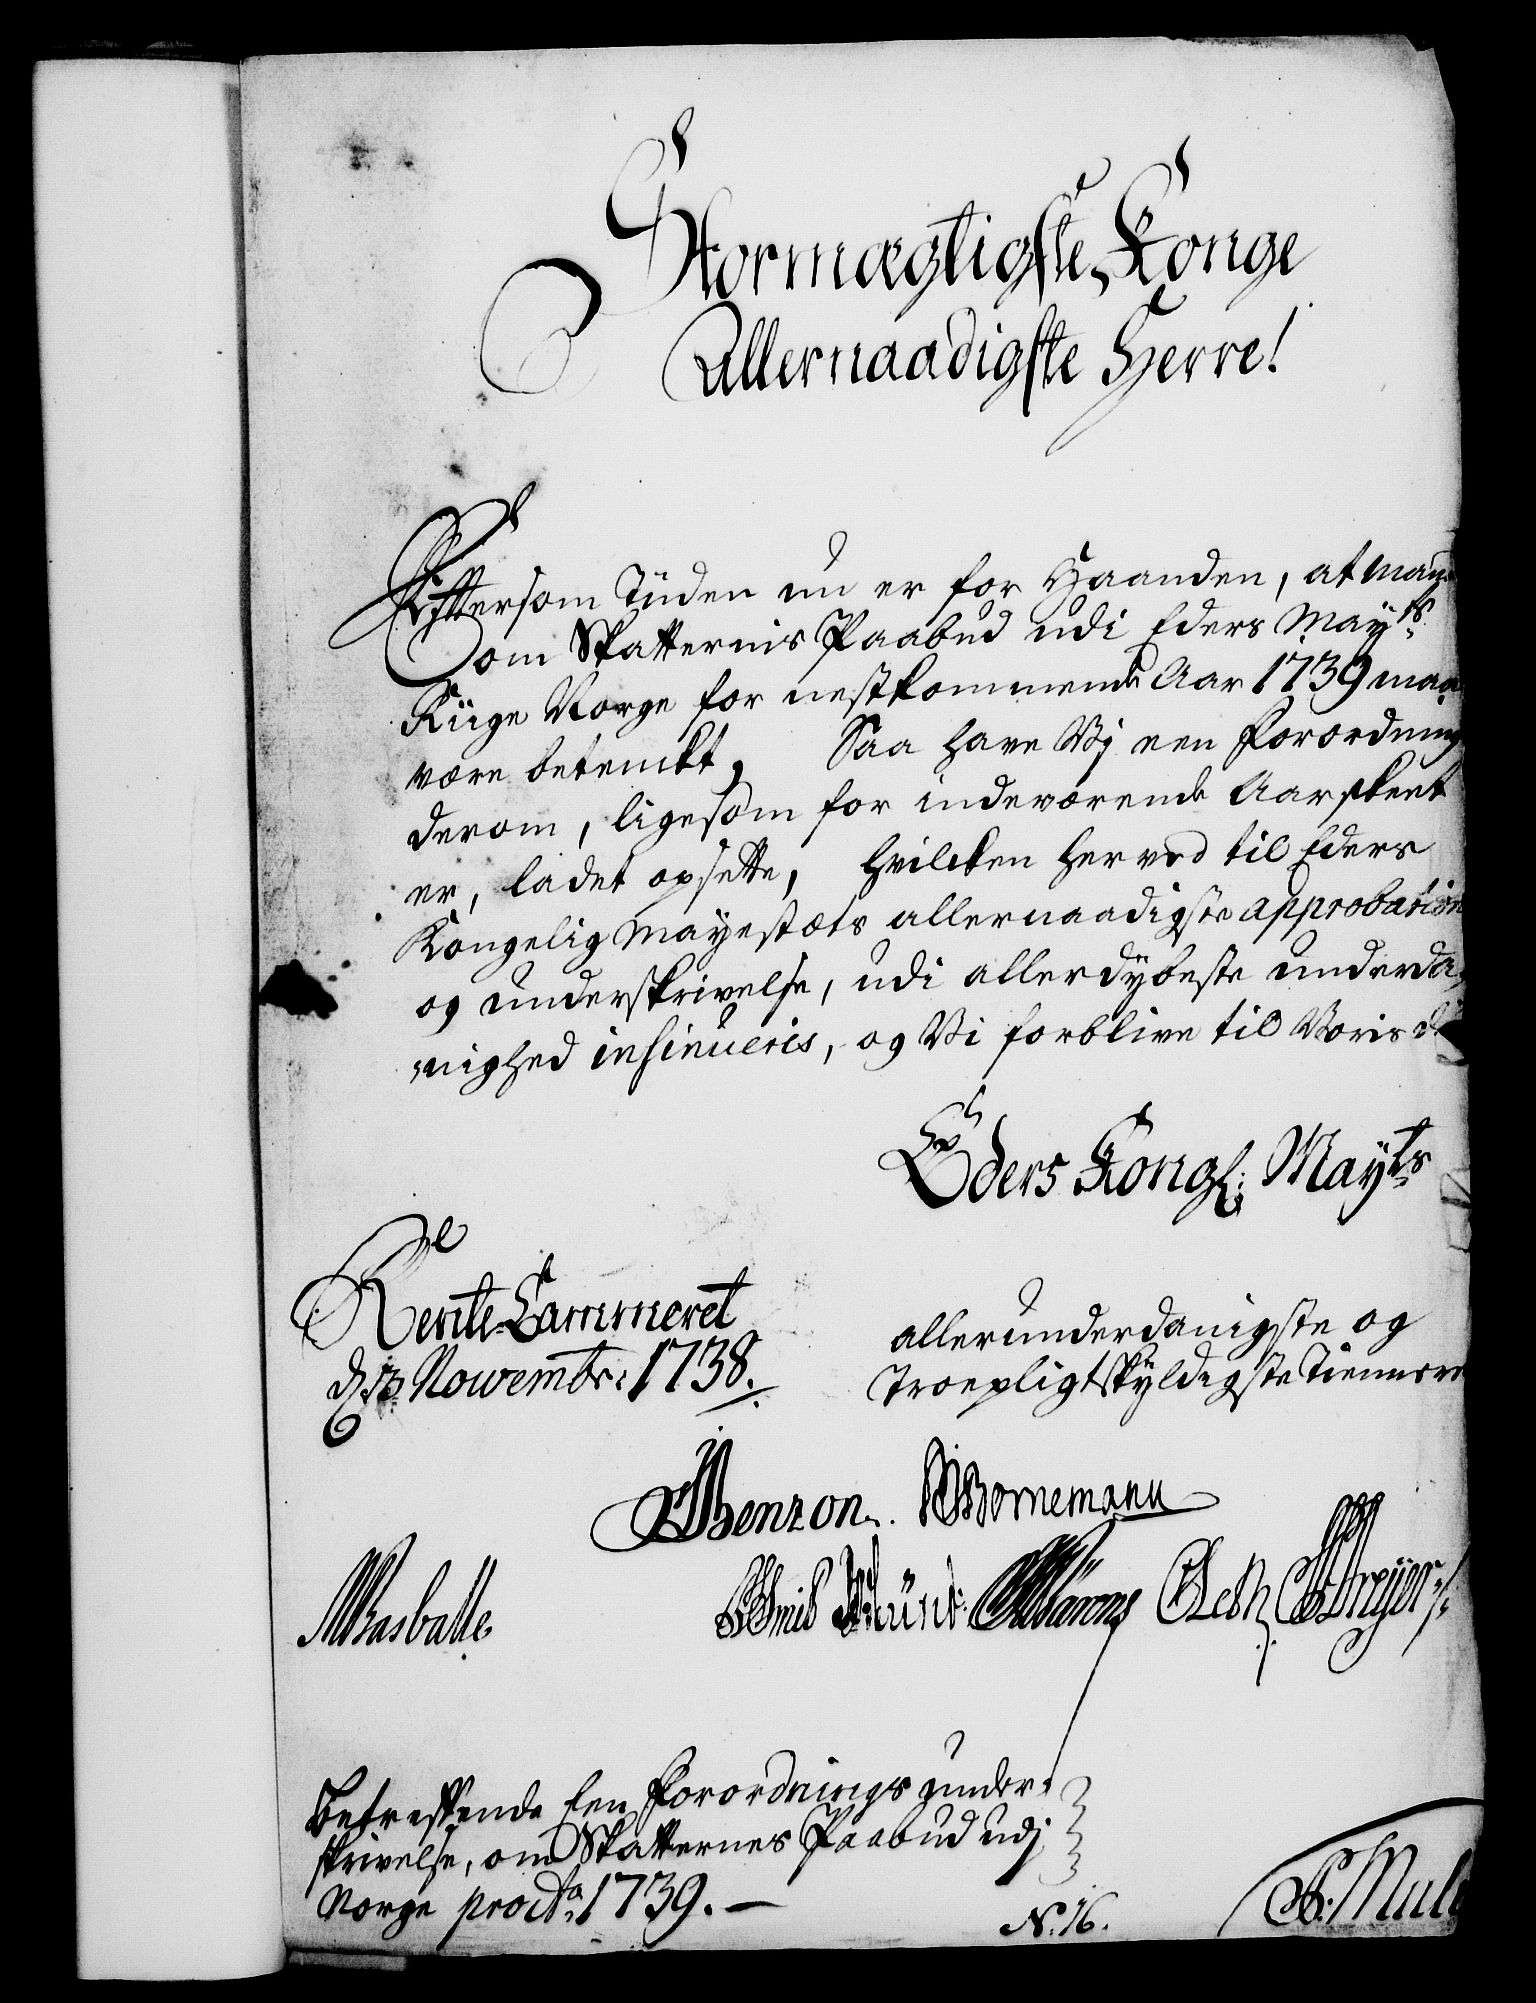 Stormægtigste Konge
Allernaadigste Herre!
Efftersom Tiiden nu er for Haanden, at man
om Skatternis Paabud udi Eders Mayts
Riige Norge for nestkommende Aar 1739 maa
være betenckt, Saa have Vj een Forordning
derom, ligesom for indeværende Aar skeet
er, ladet opsette, hvilcken herved til Eders
Kongelig Mayestæts allernaadigste approbation
og underskrivelse, udi allerdybeste underda,
,nighed insinueris, og Vi forblive til Voris
Eders Kongl: Mayts
Rente Cammeret
d. Novembr: 1738.
allerunderdanigste og
Troepligtskyldigste Tiennere
Benzon. Bornemann
Basballe.
Betreffende Een Forordnings under-
skrivelse, om Skatternes Paabud udj
Norge pro Ao 1739. —
No. 16.